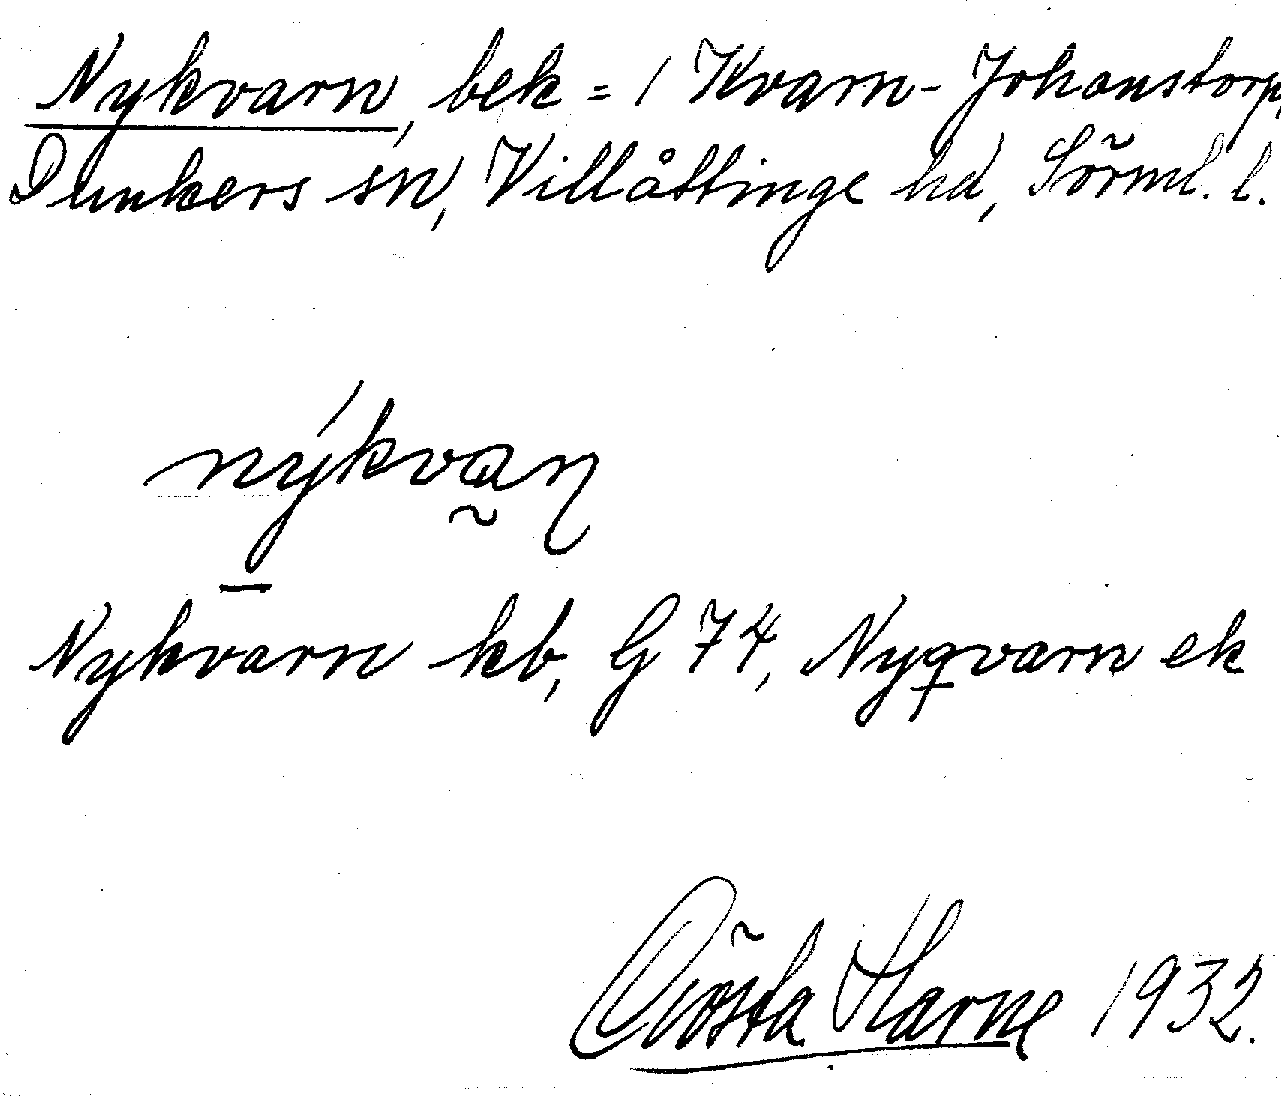 Nykvarn, bek = 1 Kvarn - Johanstorp,
Dunkers sn, Villåttinge hd, Sörml. l.
nýkvan
Nykvarn kb, G 74, Nyqvarn ek
Gösta Harne 1932.